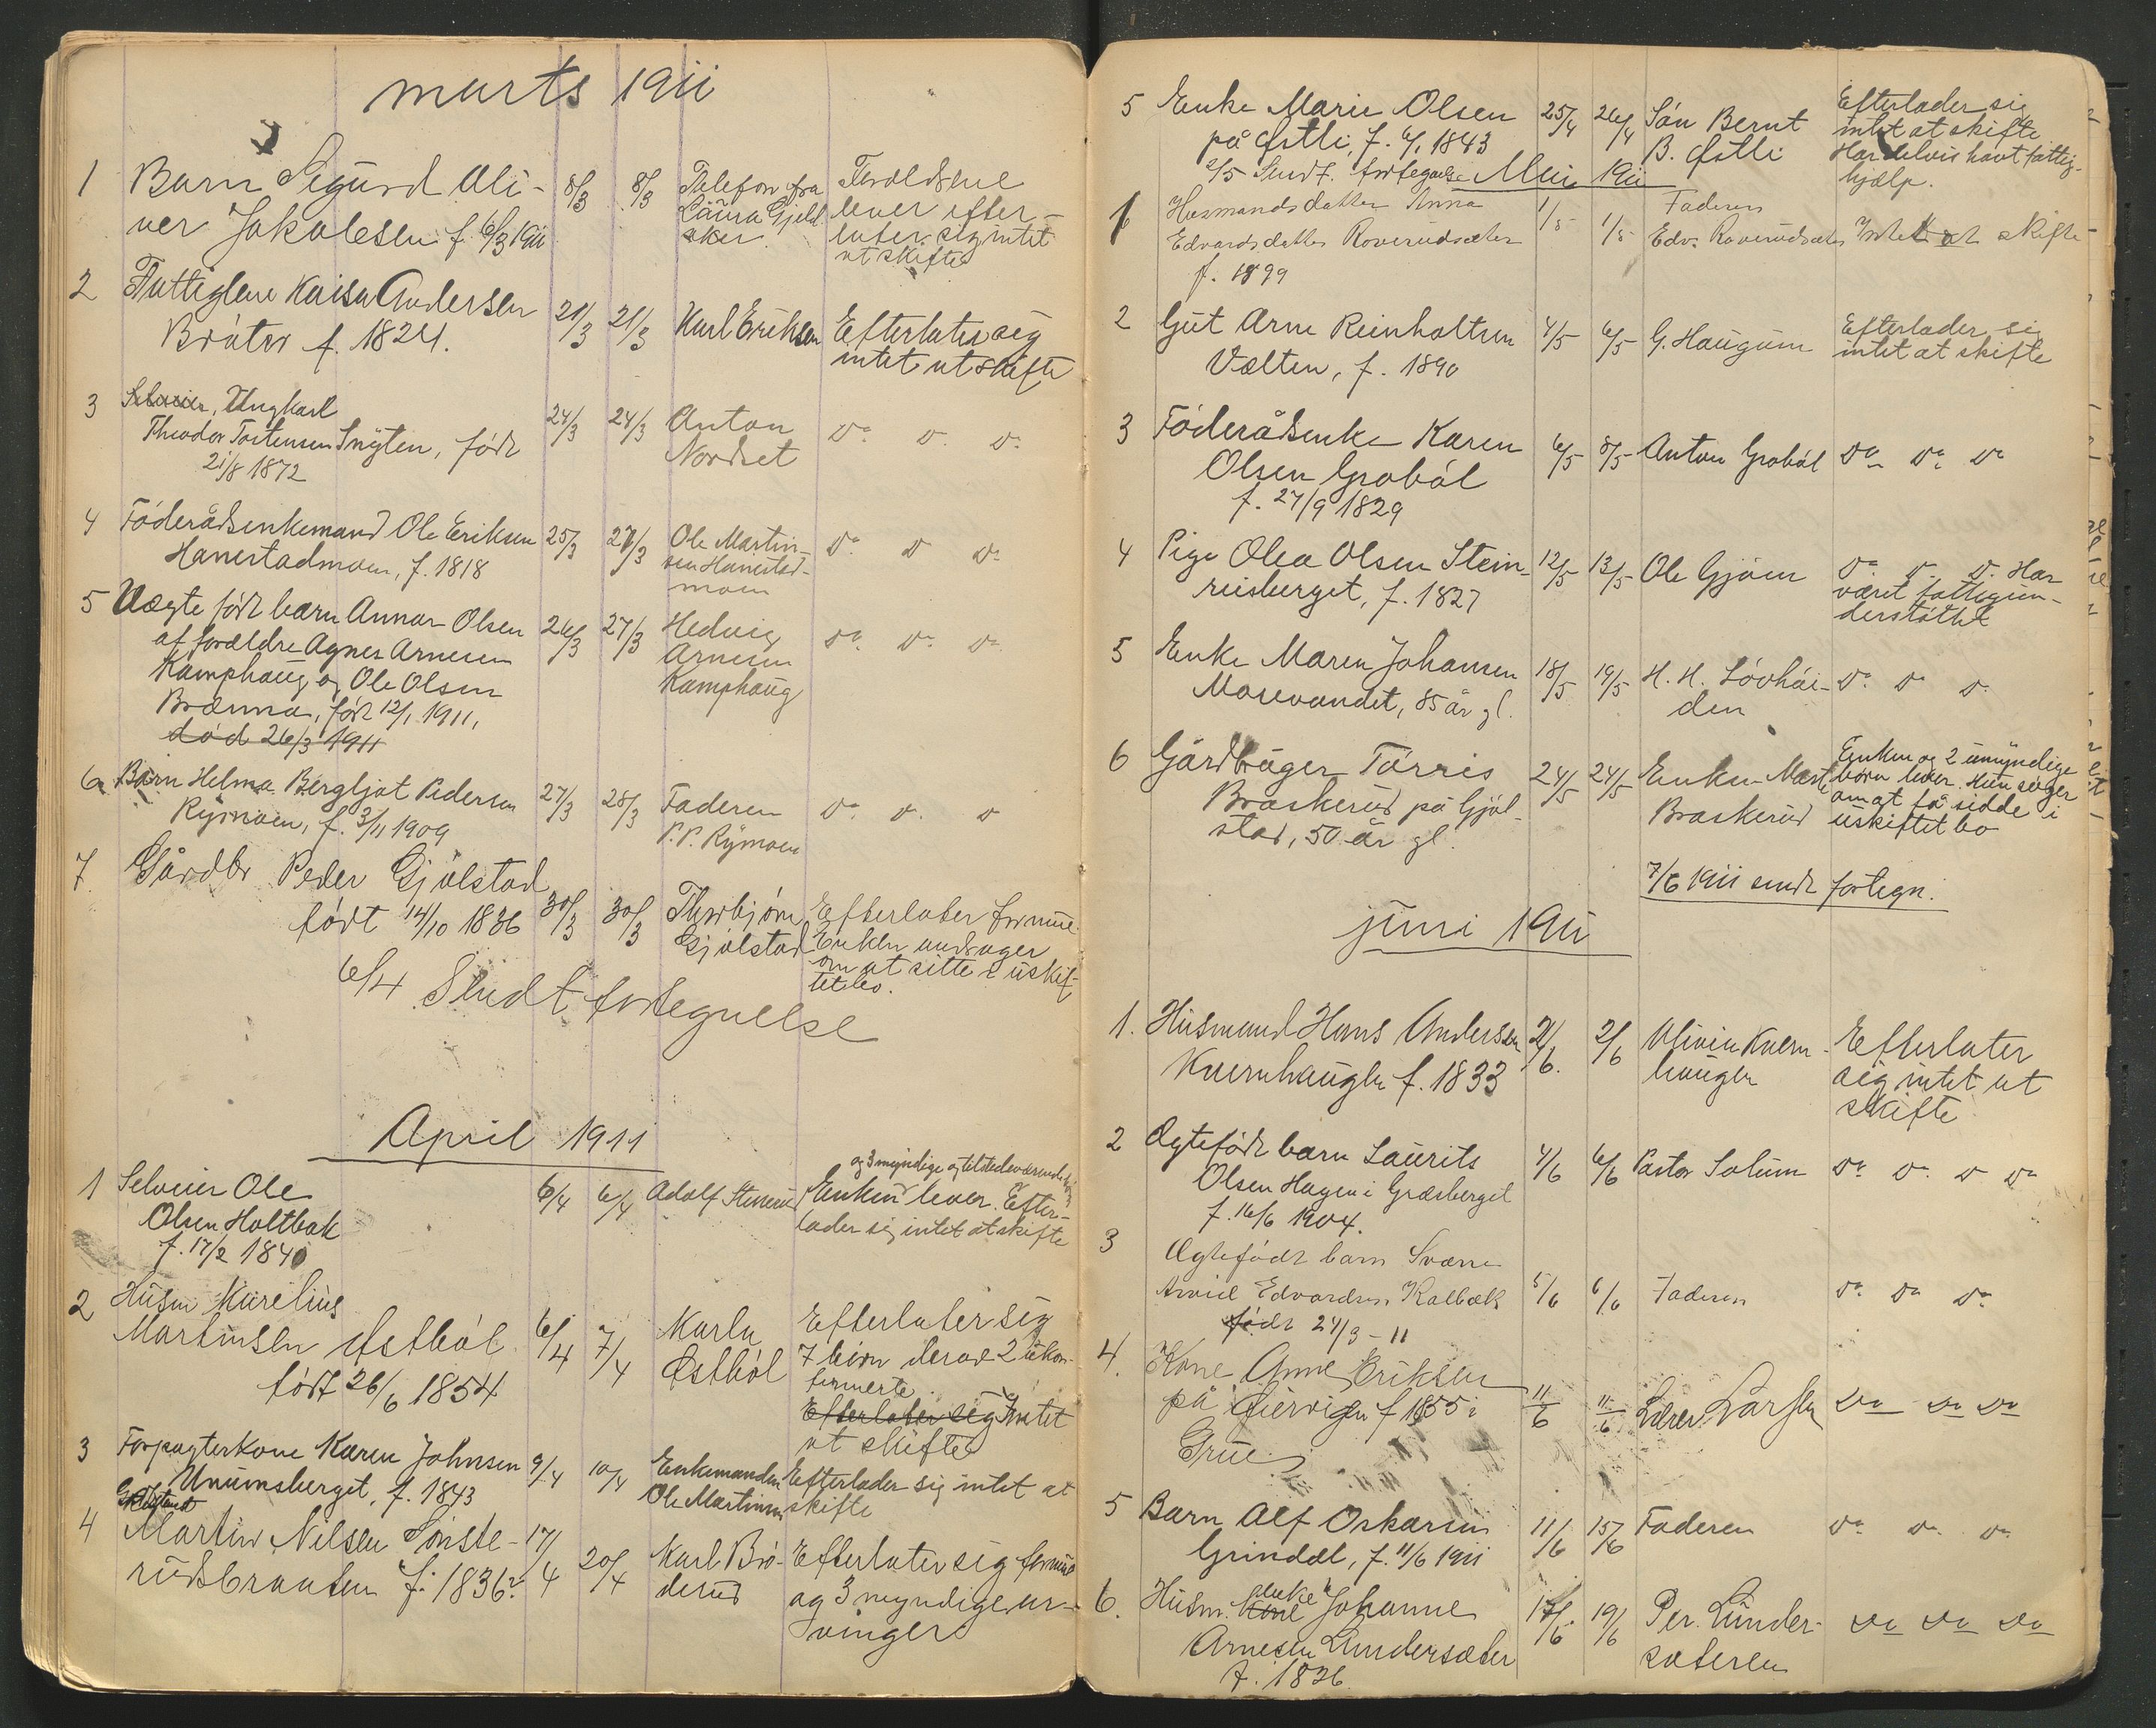 marts 1911
1 Barn Sigurd Oli- 8/3 8/3 Telefon fra Foreldrene
ver Jakobsen f. 6/3 1911 Laura Gjeld lever efter-
aker later sig intet
at skifte
2 Fattiglem Kaisa Andersen 21/3 21/3 Karl Eriksen Efterlater sig
Bråten f. 1824. intet at skifte
3 Selveier, Ungkarl 24/3 24/3 Anton Do Do Do
Theodor Torstensen Snyten, født Nordset
21/8 1872
4 Föderådsenkemand Ole Eriksen 25/3 27/3 Ole Martin- Do Do Do
Hanestadmoen, f. 1818 sen Hanestad-
moen
5 Uægte født barn Annar Olsen 26/3 27/3 Hedvig Do Do Do
af forældre Agnes Arnesen Arnesen
Kamphaug og Ole Olsen Kamphaug
Brænna, født 12/1 1911,
død 26/3 1911
6 Barn Helma Bergljot Pedersen 27/3 28/3 Faderen Do Do Do
Rymoen, f. 3/11 1909 P. P. Rymoen
7. Gårdbr Peder Gjølstad 30/3 30/3 Thorbjørn Efterlater formue
født 14/10 1836 Gjølstad Enken andrager
om at sitte i uskif-
tet bo.
6/4 Sendt fortegnelse
April 1911
og 3 myndige og tilstedeværende børn
1 Selveier Ole 6/4 6/4 Adolf Enken lever. Efter-
Olsen Holtbak lader sig intet at skifte
f. 17/2 1840
2 Husm Karelius 6/4 7/4 Karla Efterlater sig
Martinsen Østböl Østböl 7 börn derav 2 ukon-
født 26/6 1854 firmerte
Efterlater sig Intet
at skifte
3 Forpagterkone Karen Johnsen 9/4 10/4 Enkemanden Efterlader sig intet at
Unumsberget, f. 1843 Ole Martinsen skifte
4 Martin Nilsen Sönste- 17/4 20/4 Karl Brö- Efterlater sig formue
rudsbraaten f. 1836? derud og 3 myndige ar-
vinger
5 Enke Marie Olsen 25/4 26/4 Sön Bernt Efterlader sig
på Østli, f. 6/1 1843 B. Østli intet at skifte
Har delvis havt fattig-
hjælp.
2/5 Sendt fortegnelse Mai 1911
1 Husmandsdatter Anna 1/5 1/5 Faderen
Edvardsdatter Roverudsæter Edv. Roverudsæter Intet at skifte
f. 1899
2 Gut Arne Reinholtsen 4/5 6/5 G. Haugum Efterlader sig
Vælten, f. 1890 intet at skifte
3 Föderådsenke Karen 6/5 8/5 Anton Groböl Do Do Do
Olsen Groböl
f. 27/9 1829
4 Pige Olea Olsen Stein- 12/5 13/5 Ole Gjöen Do Do Do. Har
reisberget, f. 1827 været fattigun-
derstöttet
5 Enke Maren Johansen 18/5 19/5 H. H. Lövhöi- Do Do Do
Masevandet, 85 år gl. den
6 Gårdbruger Törris 24/5 24/5 Enken Marte Enken og 2 umyndige
Braskerud på Gjöl- Braskerud börn lever. Hun söger
stad, 50 år gl. om at få sidde i
uskiftet bo
7/6 1911 sendt fortegn.
juni 1911
1. Husmand Hans Andersen 2/6. 2/6 Olivia Kvern- Efterlater
Kvernhaugen f. 1833 haugen sig intet at
skifte
2 Ægtefödt barn Laurits 4/6 6/6 Pastor Solum Do Do Do Do
Olsen Hagen i Græsberget
f. 16/6 1904.
3
Ægtefödt barn Sværre
Arvid Edvardsen Kalbæk 5/6 6/6 Faderen Do Do Do
födt 24/3 - 11
4. Kone Anne Eriksen 11/6 11/6 Lærer Larsen Do Do Do
på f 1855 i
Grue
5 Barn Alf Oskarsen 11/6 15/6 Faderen Do Do Do
Grindal, f. 11/6 1911
6. Husm. kone enke Johanne 17/6 19/6 Per. Lunder- Do Do Do
Arnesen Lundersæter sæteren
f. 1836.